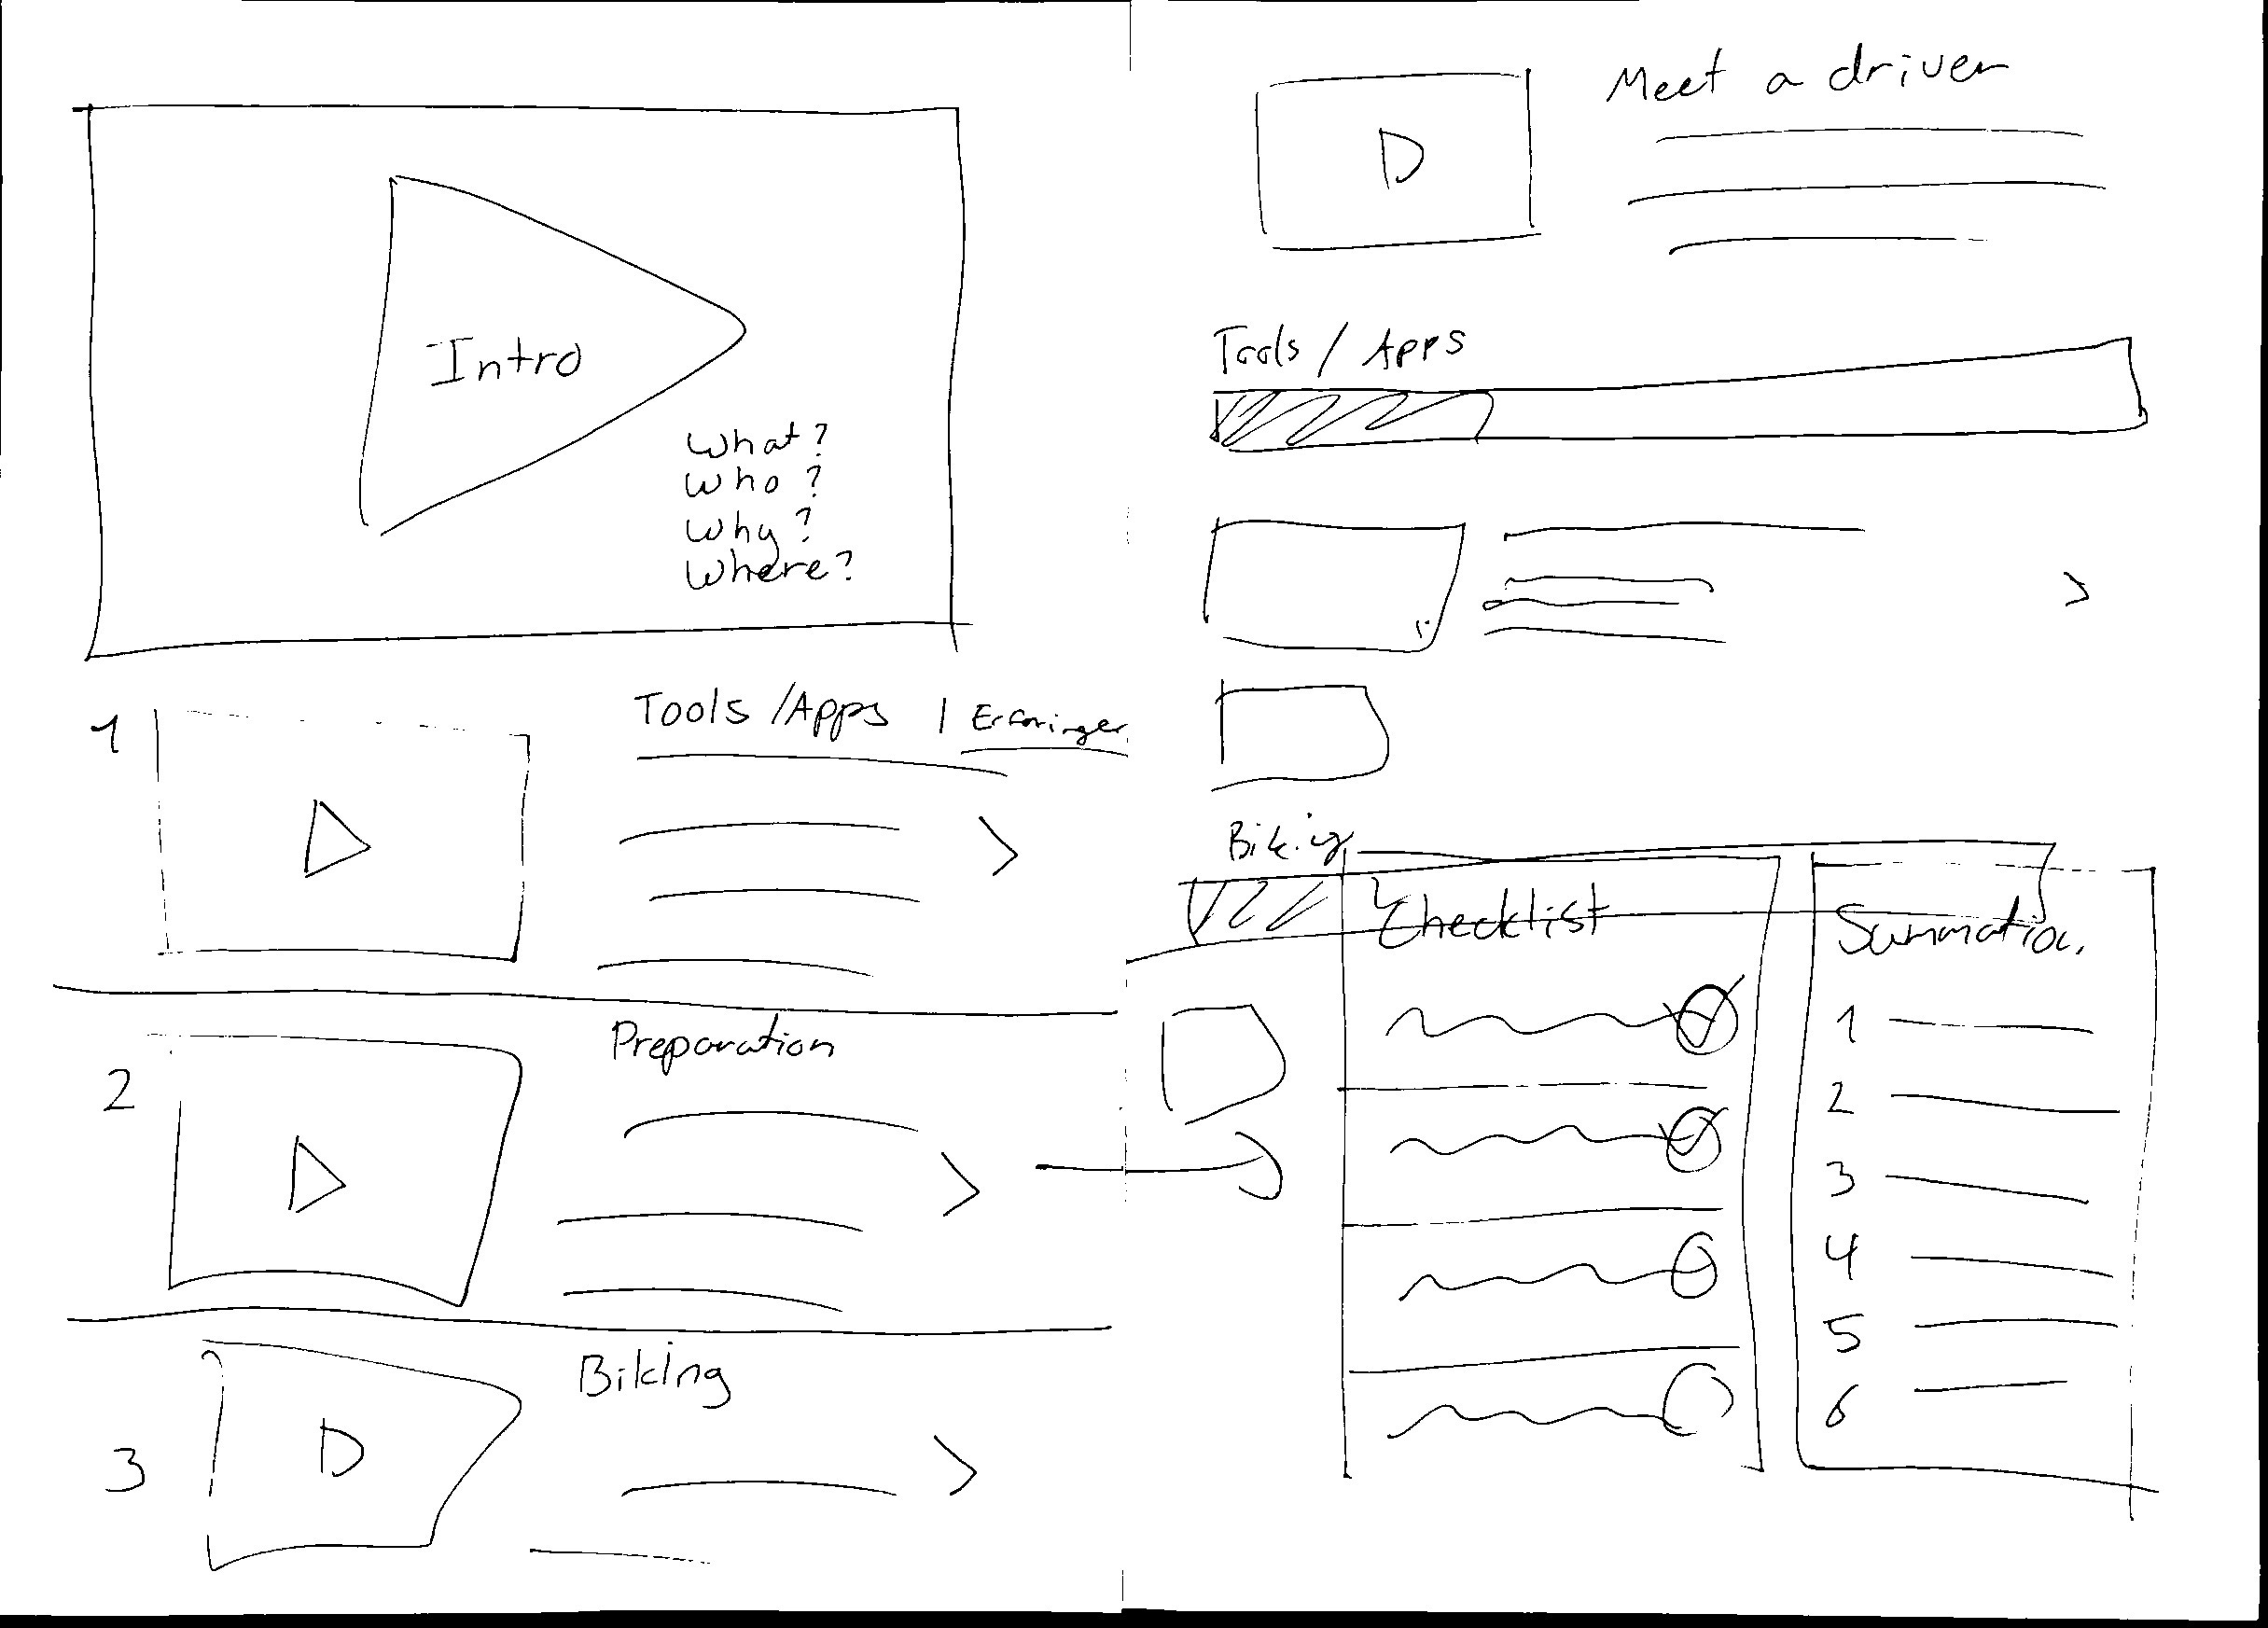 Intro
What?
Who?
Why?
Where?
1
Tools / Apps |
2
Preparation
3
Biking
Meet a driver
Tools / Apps
Biking
Checklist
Summation
1
2
3
4
5
6